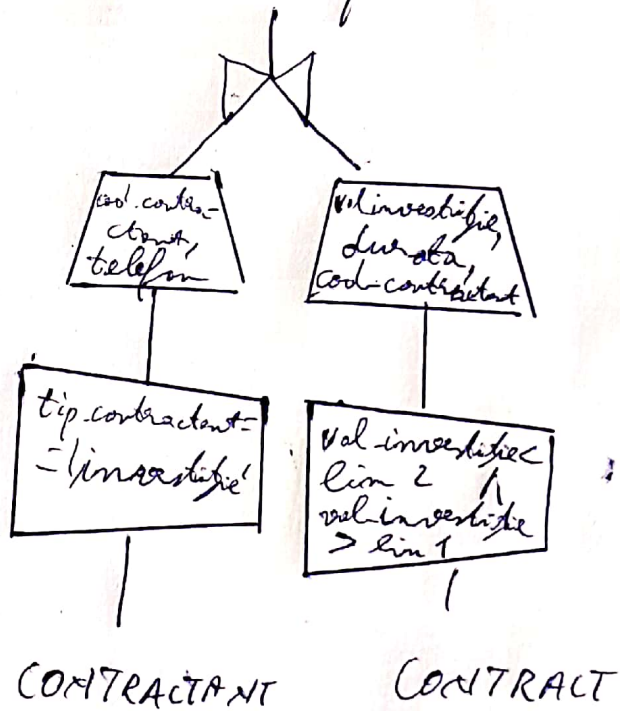 cod_contra-
ctant,
telefon
val investiție,
durata,
cod_contractant
tip_contractant=
='investiție'
val_investiție<
lim 2 ∧
val_investiție
> lim 1
CONTRACTANT
CONTRACT